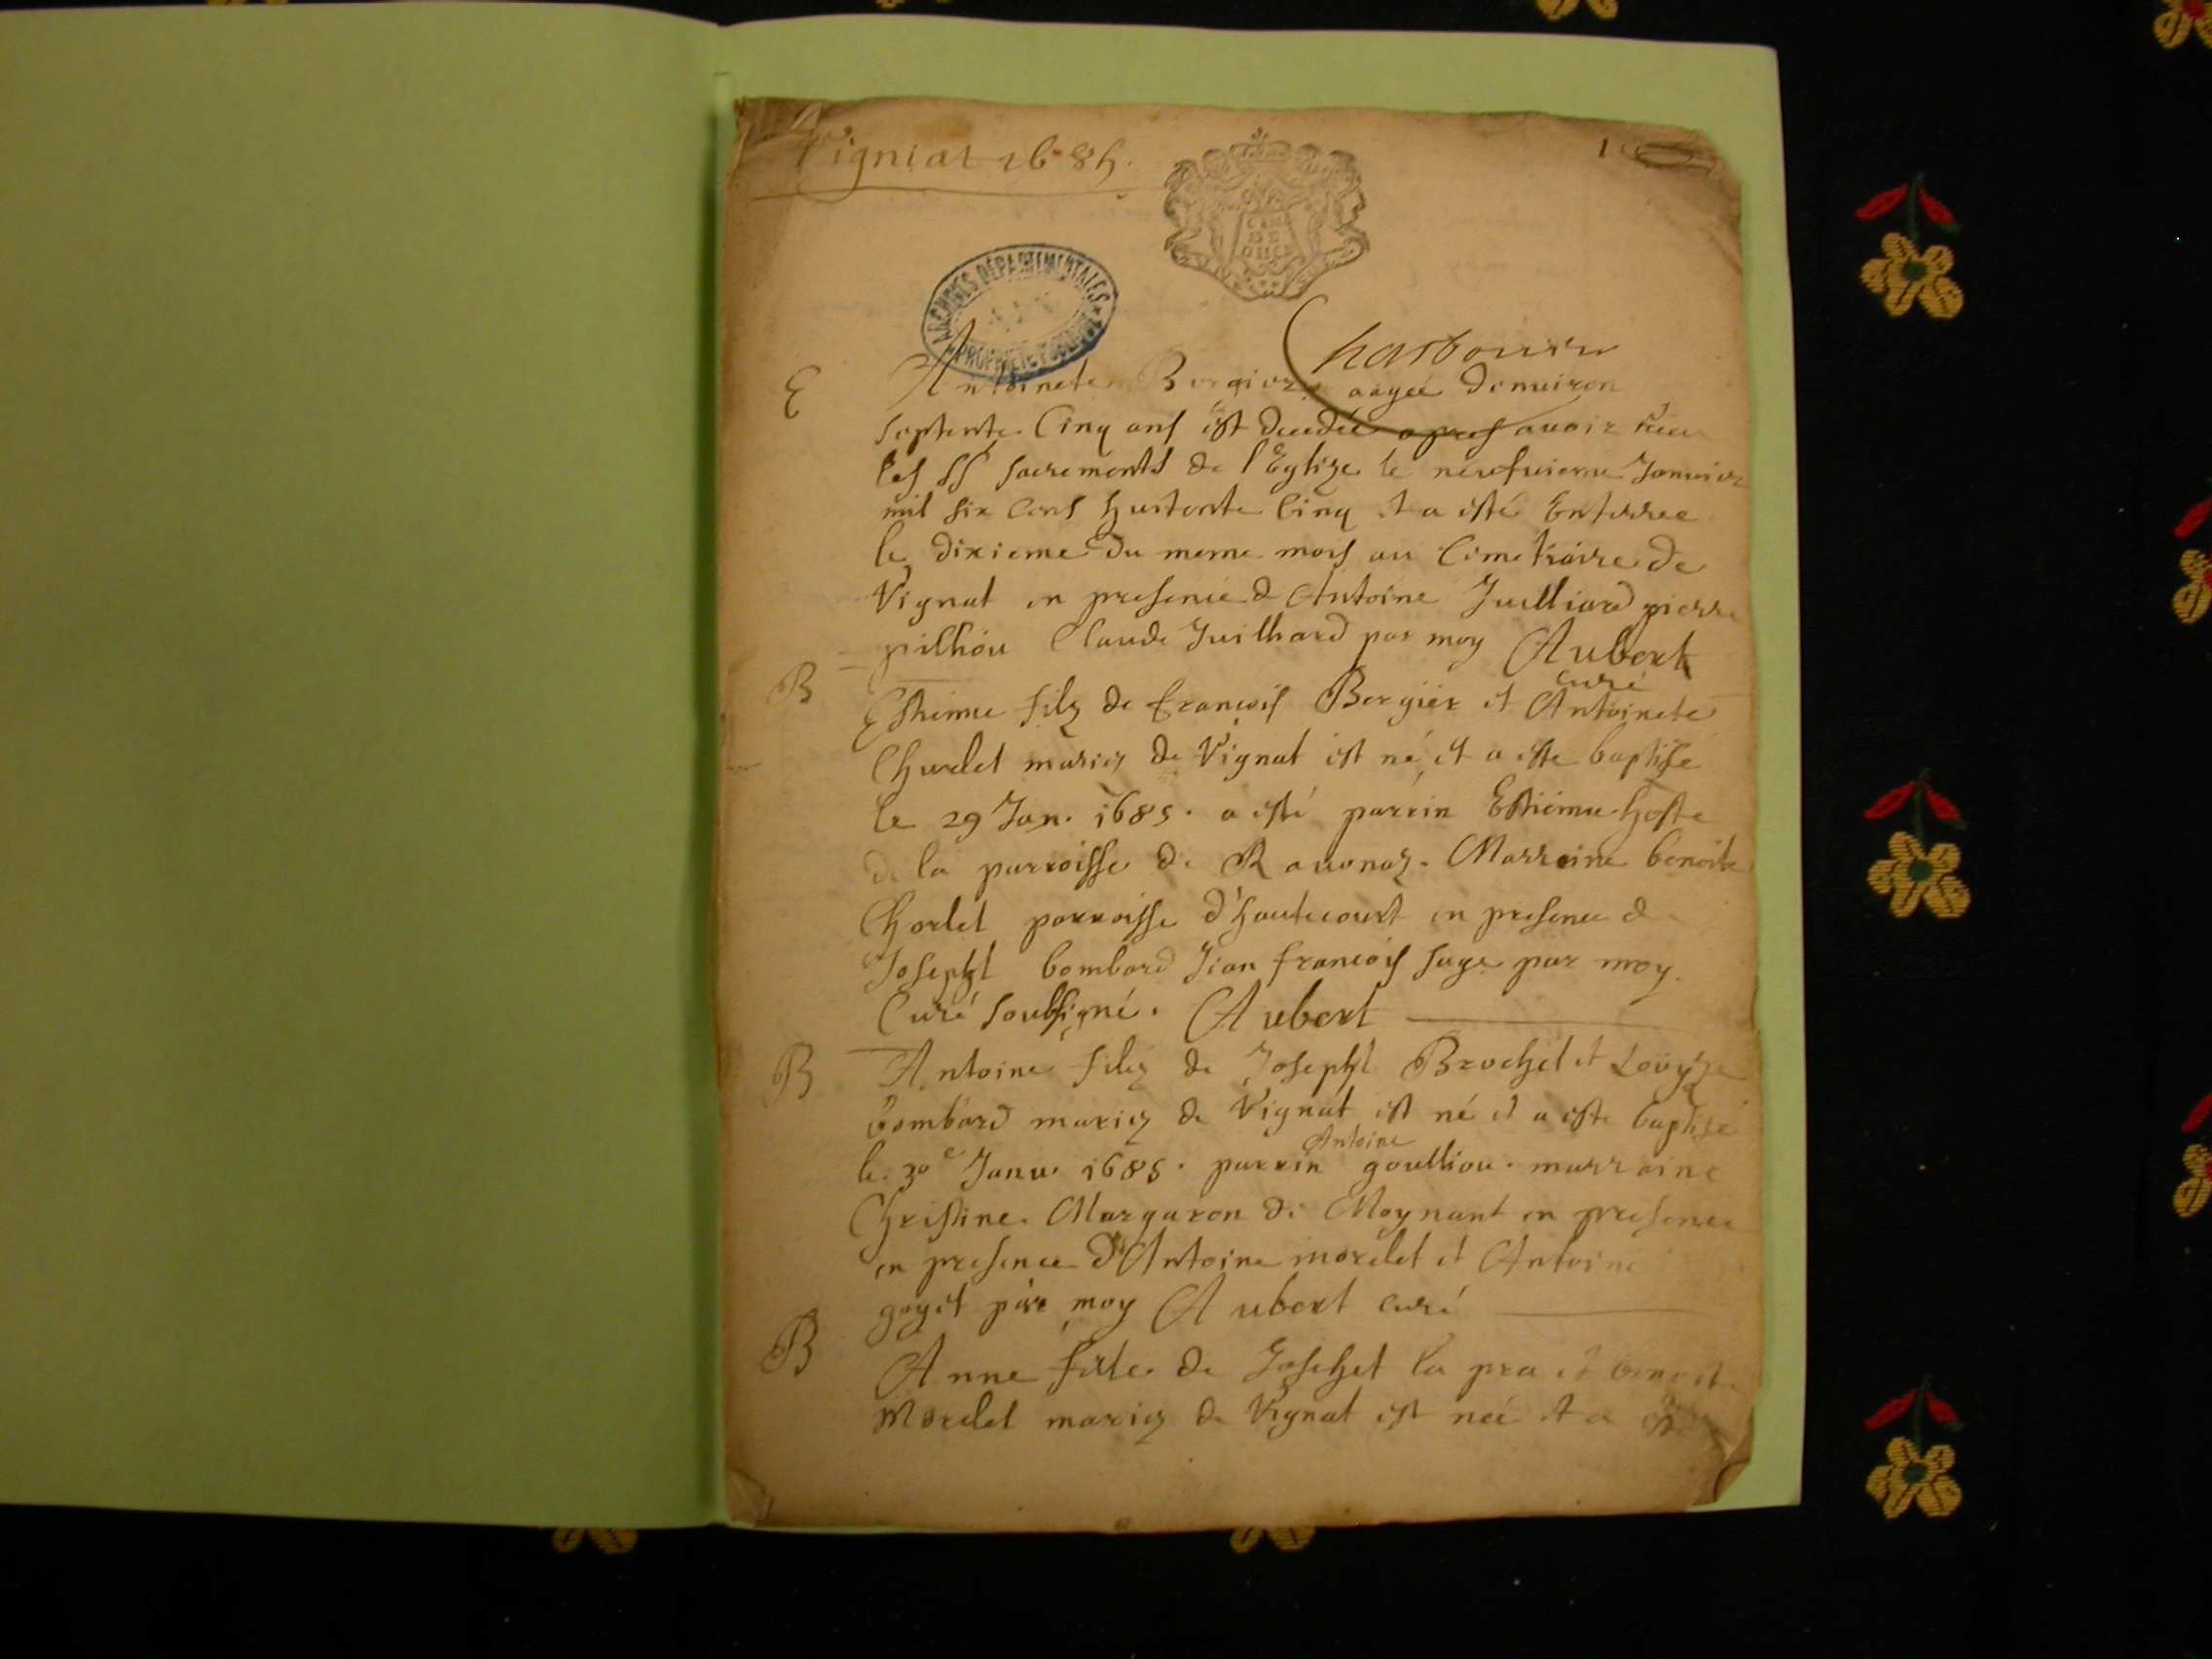 Vigniat 1685.
1
ARCHIVES DEPARTEMENTALES
AIN
PROPRIETE PUBLIQUE
Charbonnier
E
Antoinete Bergier aagée demviron
septente Cinq ans est decedée apres avoir receu
les SS sacrements de l'Eglize le neufvieme Janvier
mil six cens huitente Cinq et a esté Enterree
le dixieme du meme mois au Cimetiaire de
Vignat en presence d Antoine Juilliard pierre
pilliou Claude Juilhard par moy Aubert
curé
B
Estienne filz de francois Bergier et Antoinete
Churlet mariez de Vignat est né et a este baptisé
le 29 Jan. 1685. a esté parrin Estienne hoste
de la parroisse de Rauonaz. Marraine benoite
Chorlet parroisse d'hautecourt en presence de
Josepht bombard Jean francois sage par moy
Curé soubsigné. Aubert
B
Antoine filz de Josepht Brochet et Louyze
bombard mariez de Vignat est né et a este baptisé
Antoine
le 30e Janv. 1685. parrin goulliou. marraine
Christine Margaron de Moynant en presence
en presence d'Antoine morelet et Antoine
goyet par moy Aubert curé
B
Anne fille de la pra et benoite
Morelet mariez de Vignat est neé et a esté